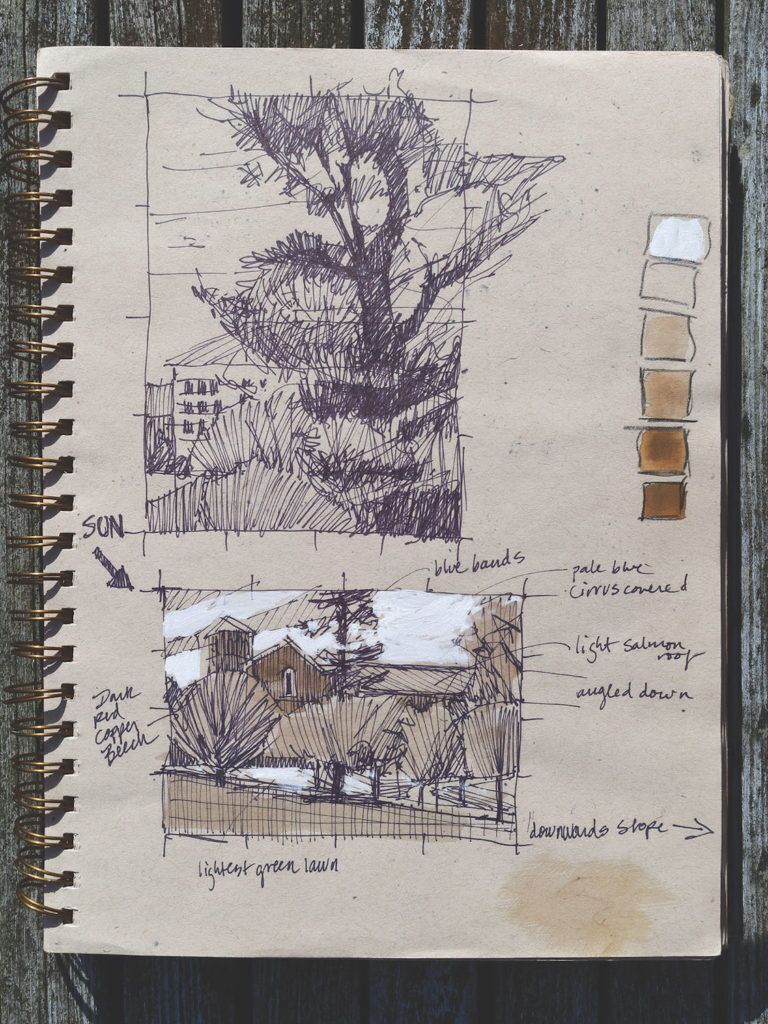 SUN
blue bands
pale blue
cirrus covered
light salmon
roof
angled down
Dark
Red
Copper
Beech
downwards slope
lightest green lawn